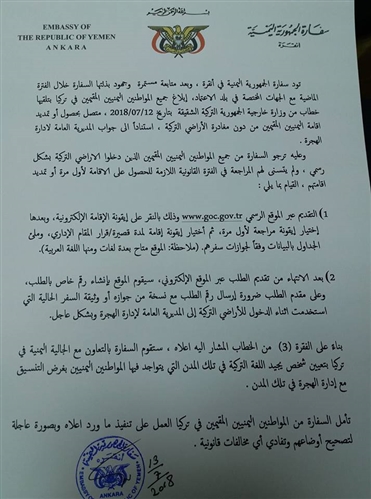 EMBASSY OF
THE REPUBLIC OF YEMEN
ANKARA
سفارة الجمهورية اليمنية
انقرة
تود سفارة الجمهورية اليمنية في أنقرة ، وبعد متابعة مستمرة وجهود بذلتها السفارة خلال الفترة
الماضية مع الجهات المختصة في بلد الاعتماد، إبلاغ جميع المواطنين اليمنيين المقيمين في تركيا بتلقيها
خطاب من وزارة خارجية الجمهورية التركية الشقيقة بتاريخ 2018/07/12 ، متصل بحصول أو تمديد
اقامة اليمنيين المقيمين من دون مغادرة الأراضي التركية ، استناداً الى جواب المديرية العامة لادارة
الهجرة .
وعليه ترجو السفارة من جميع المواطنين اليمنيين المقيمين الذين دخلوا الاراضي التركية بشكل
رسمي ، ولم يتسنى لهم المراجعة في الفترة القانونية اللازمة للحصول على الاقامة لأول مرة أو تمديد
اقامتهم ، القيام بما يلي :
1) التقديم عبر الموقع الرسمي www.goc.gov.tr وذلك بالنقر على إيقونة الإقامة الإلكترونية، وبعدها
إختيار إيقونة مراجعة لأول مرة، ثم أختيار إيقونة إقامة لمدة قصيرة/قرار المقام الإداري، وملئ
الجداول بالبيانات وفقاً لجوازات سفرهم. (ملاحظة: الموقع متاح بعدة لغات ومنها اللغة العربية).
2) بعد الانتهاء من تقديم الطلب عبر الموقع الإلكتروني، سيقوم الموقع بإنشاء رقم خاص بالطلب،
وعلى مقدم الطلب ضرورة إرسال رقم الطلب مع نسخة من جوازه أو وثيقة السفر الحالية التي
استخدمت اثناء الدخول للأراضي التركية إلى المديرية العامة لإدارة الهجرة وبشكل عاجل.
بناءً على الفقرة (3) من الخطاب المشار اليه اعلاه ، ستقوم السفارة بالتعاون مع الجالية اليمنية في
تركيا بتعيين شخص يجيد اللغة التركية في تلك المدن التي يتواجد فيها المواطنين اليمنيين بغرض التنسيق
مع إدارة الهجرة في تلك المدن .
تأمل السفارة من المواطنين اليمنيين المقيمين في تركيا العمل على تنفيذ ما ورد اعلاه وبصورة عاجلة
لتصحيح أوضاعهم وتفادي أي مخالفات قانونية .
13
7
2018
ANKARA